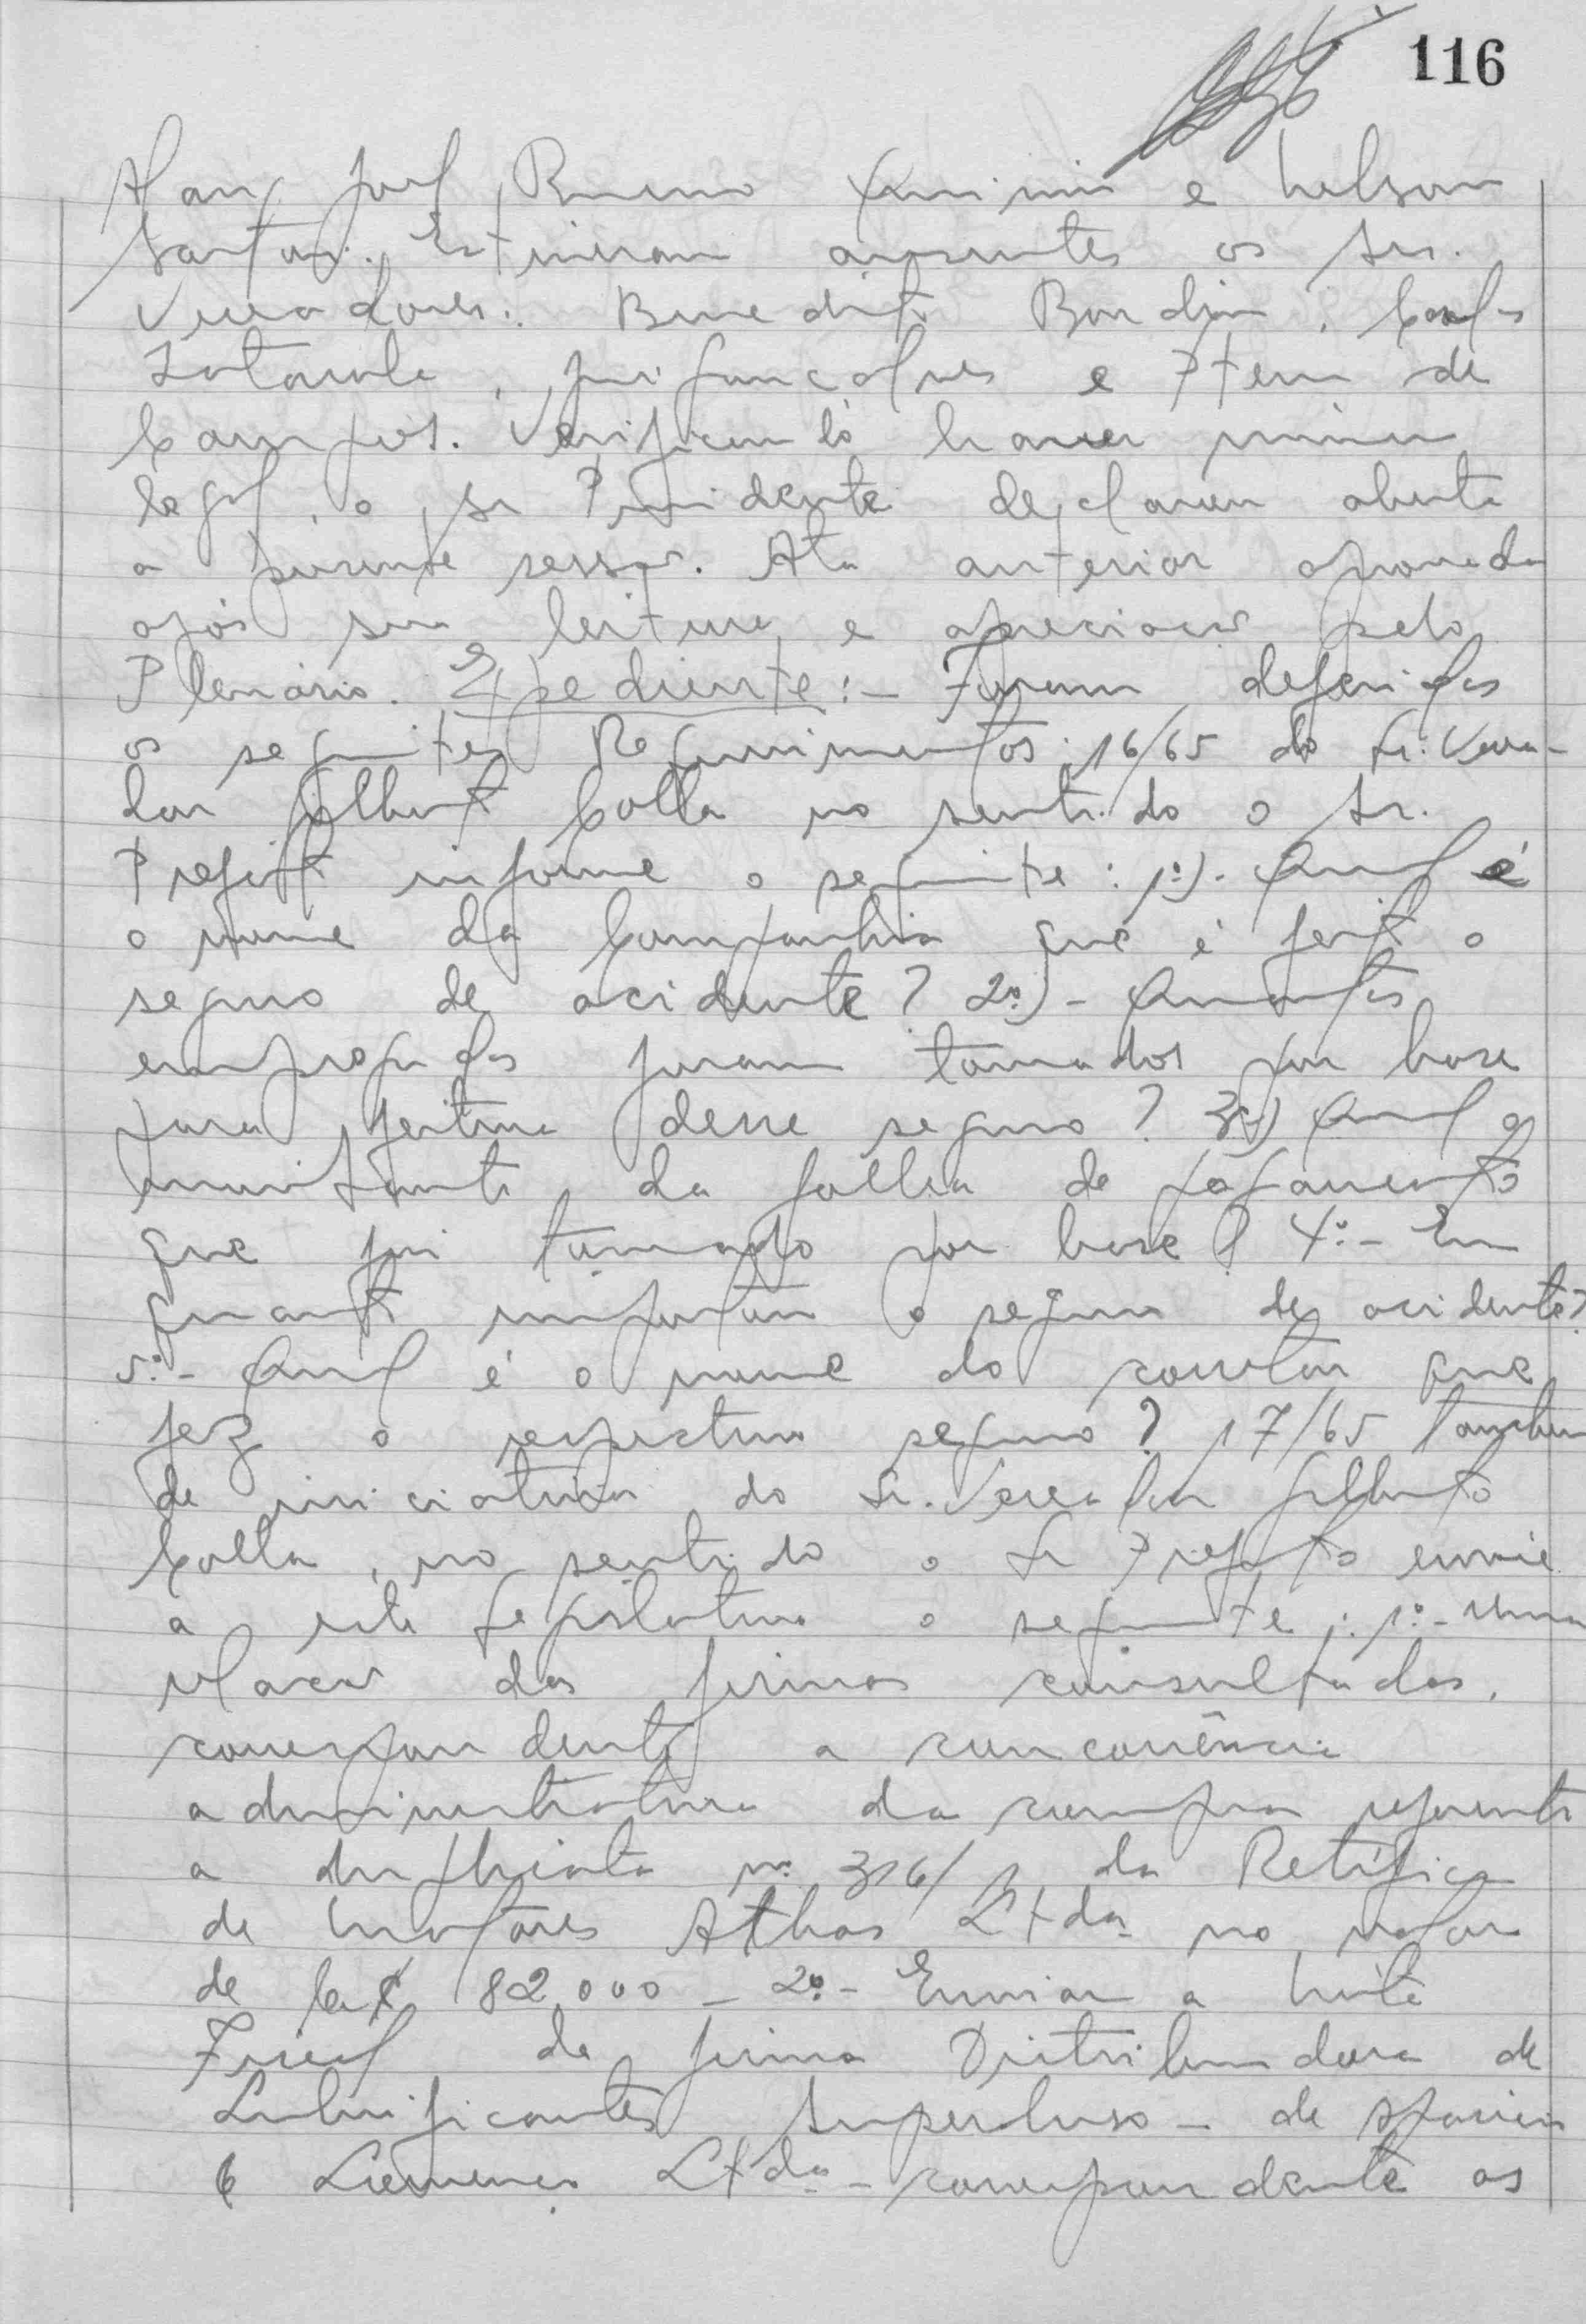 116
e Nelson
Santos. Estiveram ausentes os Srs.
Vereadores: Benedito Bordim, Carlos
e
Campos. Verificando haver número
legal, o Sr Presidente declarou aberta
a presente sessão. Ata anterior aprovada
após sua leitura e apreciação pelo
Plenário. Expediente:- Foram deferidos
os seguintes Requerimentos: 16/65 do Sr. Verea-
dor Gilberto Colla no sentido o Sr.
Prefeito informe o seguinte: 1º). Qual é
o nome da Companhia que é feito o
seguro de acidente? 2º)- Quantos
empregados foram tomados por base
para feitura desse seguro? 3º) Qual o
montante da folha de pagamento
que foi tomado por base? 4º- Em
quanto importou o seguro de acidente?
5º- Qual é o nome do corretor que
fez o respectivo seguro? 17/65 também
de iniciativa do Sr. Vereador Gilberto
Colla, no sentido o Sr Prefeito envie
a este Legislativo o seguinte: 1º- Uma
relação das firmas consultadas,
correspondente a concorrência
administrativa da compra referente
a duplicata nº 316/ da Retífica
de Motores Athos Ltda no valor
de Cr$ 82.000 - 2º- Enviar a Nota
Fiscal da firma Distribuidora de
Lubrificantes Superluso - de
Ltda - correspondente as